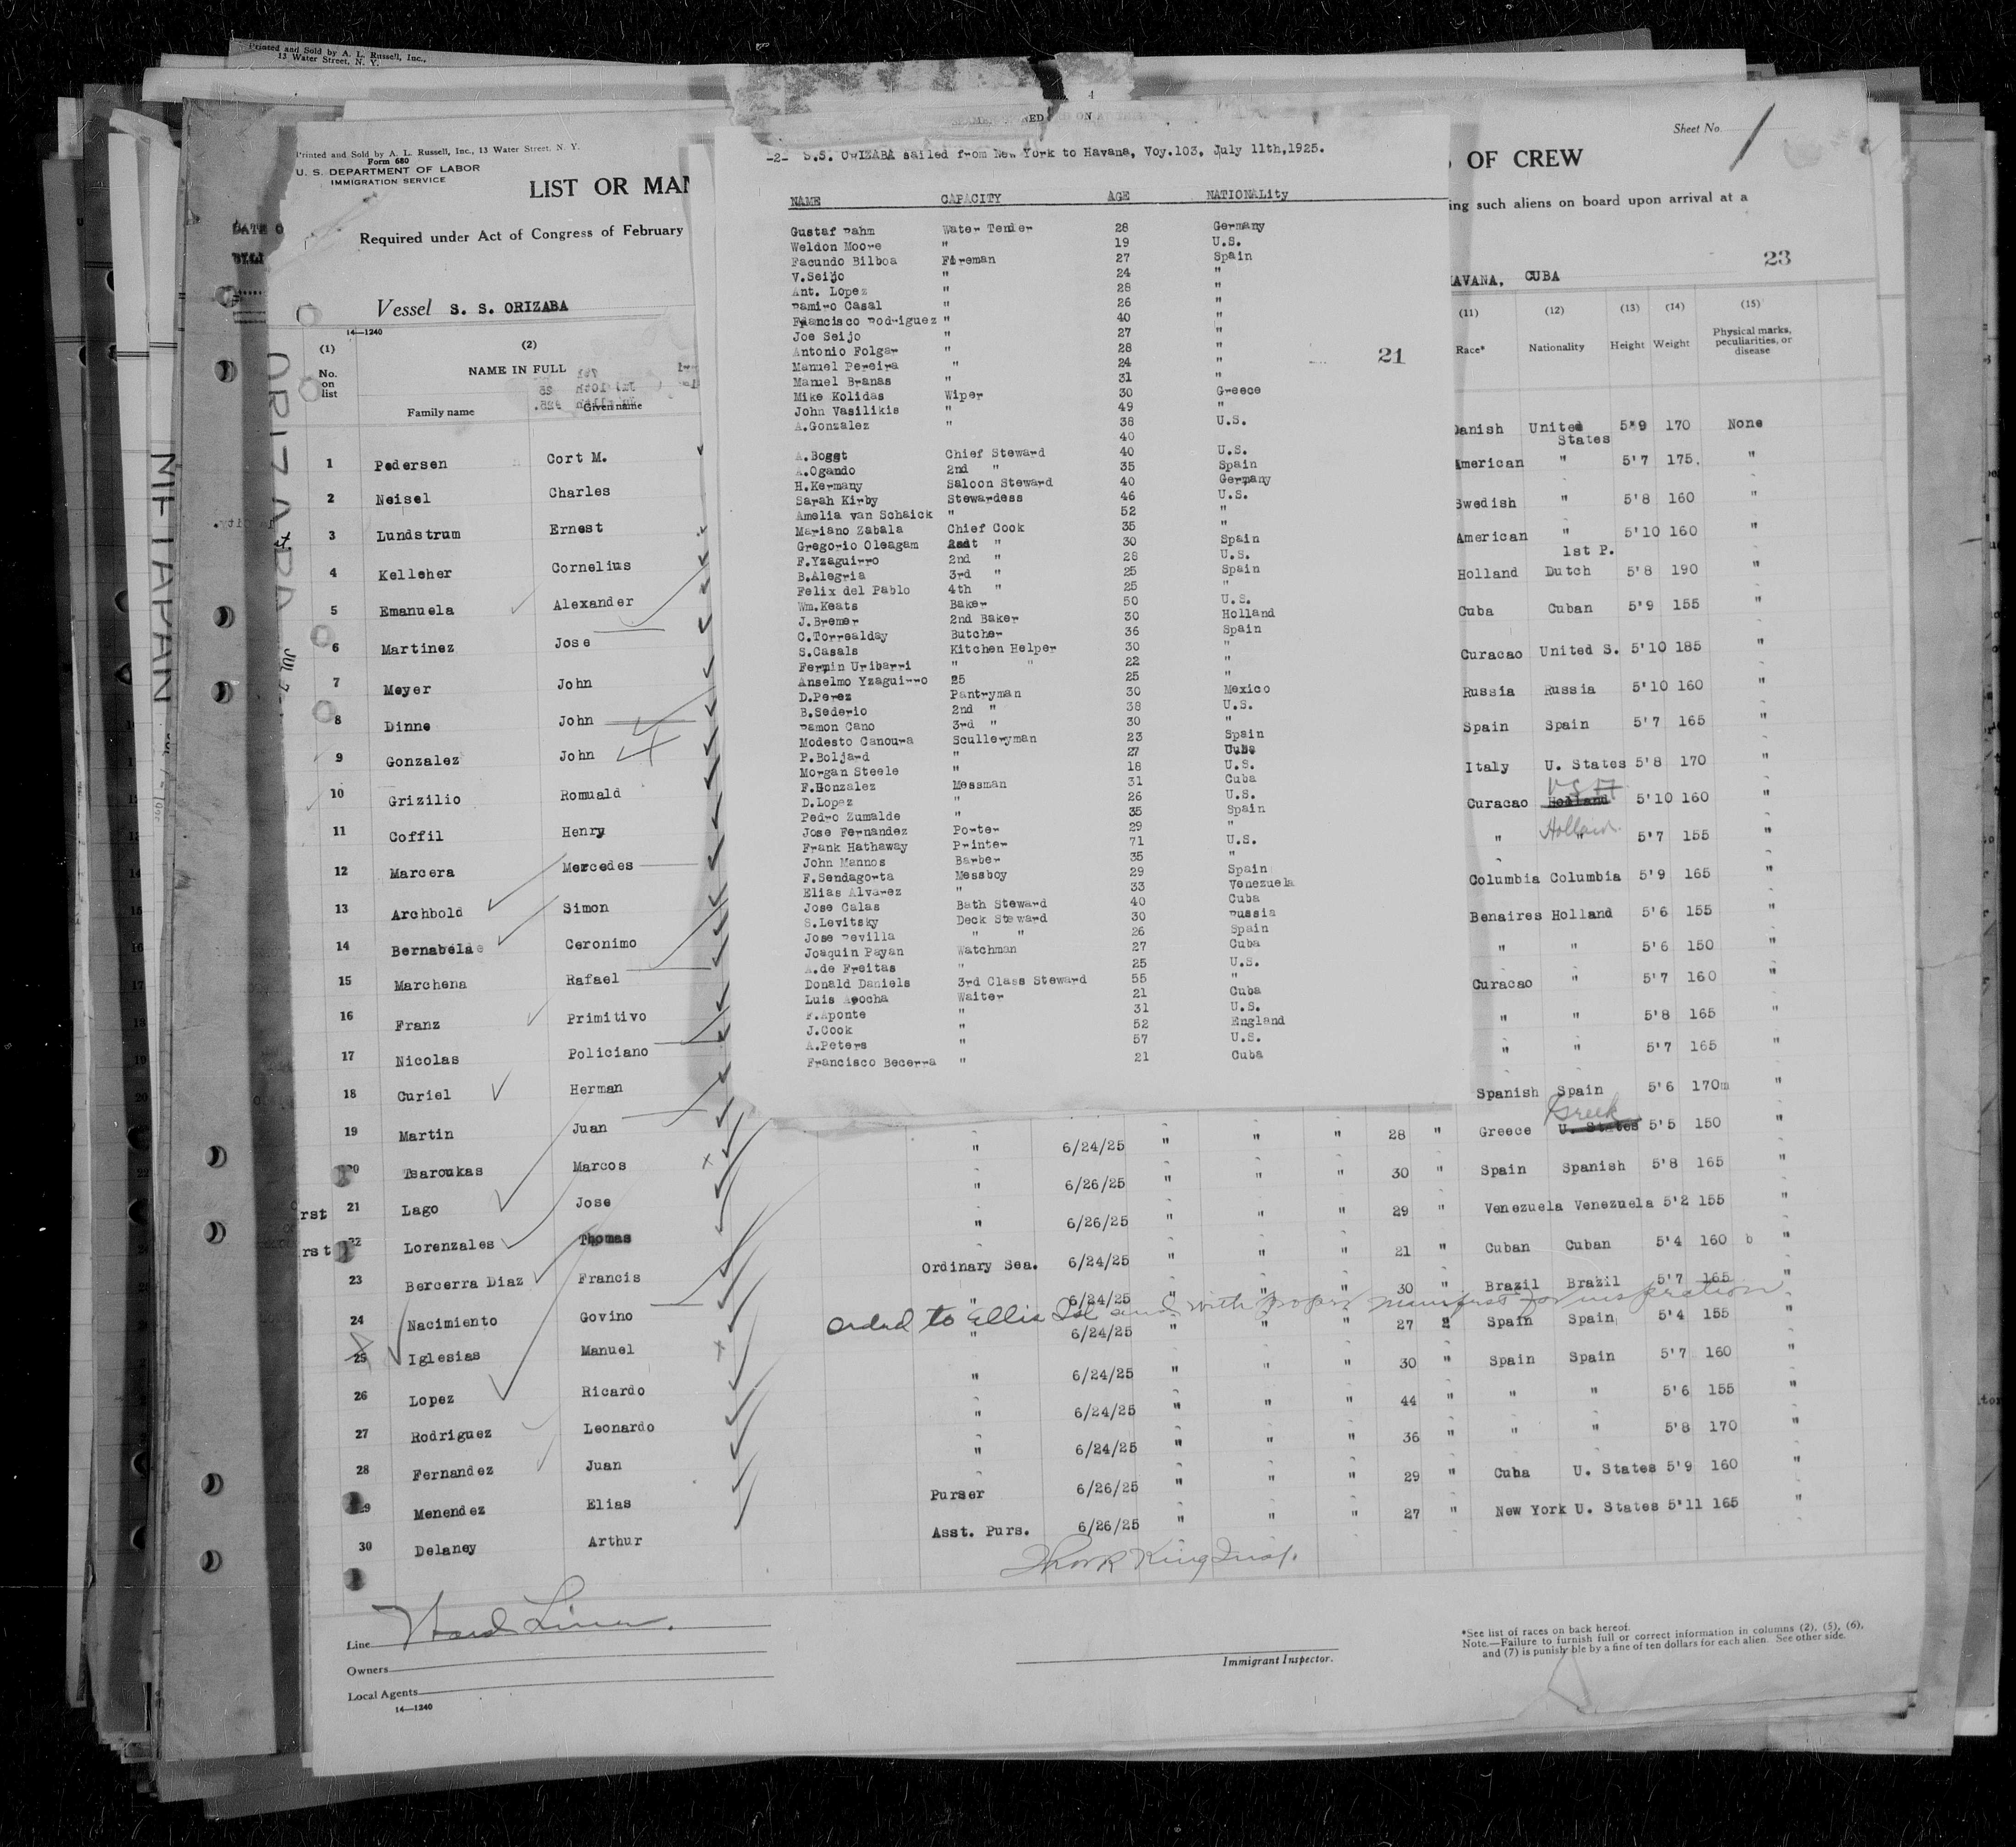 Printed and Sold by A. L. Russell, Inc.,
13 Water Street, N. Y.
Printed and Sold by A. L. Russell, Inc., 13 Water Street. N. Y.
Form 680
U. S. DEPARTMENT OF LABOR
IMMIGRATION SERVICE
LIST OR MAN
Required under Act of Congress of February
Vessel S. S. ORIZABA
14—1240
(1) (2)
No. on list
NAME IN FULL
Family name Given name
1 Pedersen Cort M.
2 Neisel Charles
3 Lundstrum Ernest
4 Kelleher Cornelius
5 Emanuela Alexander
6 Martinez Jose
7 Meyer John
8 Dinne John
9 Gonzalez John
10 Grizilio Romuald
11 Coffil Henry
12 Marcera Mercedes
13 Archbold Simon
14 Bernabela Ceronimo
15 Marchena Rafael
16 Franz Primitivo
17 Nicolas Policiano
18 Curiel Herman
19 Martin Juan
20 Tsaroukas Marcos
rst 21 Lago Jose
rst 22 Lorenzales Thomas
23 Bercerra Diaz Francis
24 Nacimiento Govino
25 Iglesias Manuel
26 Lopez Ricardo
27 Rodriguez Leonardo
28 Fernandez Juan
29 Menendez Elias
30 Delaney Arthur
-2- S.S. ORIZABA sailed from New York to Havana, Voy.103, July 11th,1925.
NAME CAPACITY AGE NATIONALity
Gustaf Rahm Water Tender 28 Germany
Weldon Moore " 19 U.S.
Facundo Bilboa Fireman 27 Spain
V.Seijo " 24 "
Ant. Lopez " 28 "
Ramiro Casal " 26 "
Francisco Rodriguez " 40 "
Joe Seijo " 27 "
Antonio Folgar " 28 "
Manuel Pereira " 24 "
Manuel Branas " 31 "
Mike Kolidas Wiper 30 Greece
John Vasilikis " 49 "
A.Gonzalez " 38 U.S.
40
A.Bogst Chief Steward 40 U.S.
A.Ogando 2nd " 35 Spain
H.Kermany Saloon Steward 40 Germany
Sarah Kirby Stewardess 46 U.S.
Amelia van Schaick " 52 "
Mariano Zabala Chief Cook 35 "
Gregorio Oleagam " 30 Spain
F.Yzaguirro 2nd " 28 U.S.
B.Alegria 3rd " 25 Spain
Felix del Pablo 4th " 25 "
Wm.Keats Baker 50 U.S.
J.Bremer 2nd Baker 30 Holland
C.Torrealday Butcher 36 Spain
S.Casals Kitchen Helper 30 "
Fermin Uribarri " " 22 "
Anselmo Yzaguirro 25 25 "
D.Perez Pantryman 30 Mexico
B.Sederio 2nd " 38 U.S.
Ramon Cano 3rd " 30 "
Modesto Canoura Sculleryman 23 Spain
P.Boljard " 27 Cuba
Morgan Steele " 18 U.S.
F.Gonzalez Messman 31 Cuba
D.Lopez " 26 U.S.
Pedro Zumalde " 35 Spain
Jose Fernandez Porter 29 "
Frank Hathaway Printer 71 U.S.
John Mannos Barber 35 "
F.Sendagorta Messboy 29 Spain
Elias Alvarez " 33 Venezuela
Jose Calas Bath Steward 40 Cuba
S.Levitsky Deck Steward 30 Russia
Jose Revilla " " 26 Spain
Joaquin Payan Watchman 27 Cuba
A.de Freitas " 25 U.S.
Donald Daniels 3rd Class Steward 55 "
Luis Arocha Waiter 21 Cuba
F.Aponte " 31 U.S.
J.Cook " 52 England
A.Peters " 57 U.S.
Francisco Becerra " 21 Cuba
21
Sheet No. 1
OF CREW
ing such aliens on board upon arrival at a
23
HAVANA, CUBA
(11) (12) (13) (14) (15)
Race* Nationality Height Weight Physical marks, peculiarities, or disease
Danish United States 5'9 170 None
American " 5'7 175. "
Swedish " 5'8 160 "
American " 5'10 160 "
1st P.
Holland Dutch 5'8 190 "
Cuba Cuban 5'9 155 "
Curacao United S. 5'10 185 "
Russia Russia 5'10 160 "
Spain Spain 5'7 165 "
Italy U. States 5'8 170 "
USA
Curacao Holland 5'10 160 "
Holland
" " 5'7 155 "
Columbia Columbia 5'9 165 "
Benaires Holland 5'6 155 "
" " 5'6 150 "
Curacao " 5'7 160 "
" " 5'8 165 "
" " 5'7 165 "
Spanish Spain 5'6 170m "
Greek
" 6/24/25 " " " 28 " Greece U. States 5'5 150 "
" 6/26/25 " " " 30 " Spain Spanish 5'8 165 "
" 6/26/25 " " " 29 " Venezuela Venezuela 5'2 155 "
Ordinary Sea. 6/24/25 " " " 21 " Cuban Cuban 5'4 160 b "
" 6/24/25 " " " 30 " Brazil Brazil 5'7 165 "
Orded to Ellis Isl and with proper manifest for inspection.
" 6/24/25 " " " 27 " Spain Spain 5'4 155 "
" 6/24/25 " " " 30 " Spain Spain 5'7 160 "
" 6/24/25 " " " 44 " " " 5'6 155 "
" 6/24/25 " " " 36 " " " 5'8 170 "
Purser 6/26/25 " " " 29 " Cuba U. States 5'9 160 "
Asst. Purs. 6/26/25 " " " 27 " New York U. States 5'11 165 "
King Insp.
Line Ward Line.
Owners
Local Agents
14—1240
Immigrant Inspector.
*See list of races on back hereof.
Note.—Failure to furnish full or correct information in columns (2), (5), (6),
and (7) is punishable by a fine of ten dollars for each alien. See other side.